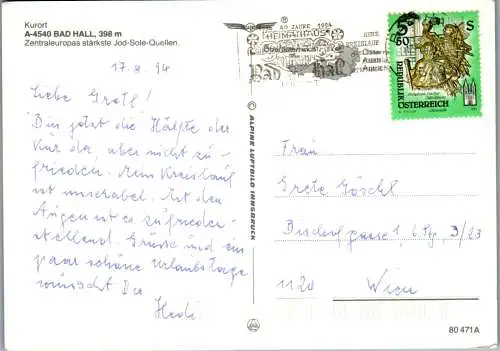 Kurort
A-4540 BAD HALL, 398 m
Zentraleuropas stärkste Jod-Sole-Quellen.
17. 8. 94
Liebe Gretl!
Bin jetzt die Hälfte der
Kur da, aber nicht zu-
frieden. Mein Kreislauf
ist miserabel. Mit den
Augen ist es zufrieden-
stellend. Grüsse und ein
paar schöne Urlaubstage
wünscht Dir
Hedi
ALPINE LUFTBILD INNSBRUCK
®
40 JAHRE 1994
HEIMATHAUS
Bad Hall
5.50
S
REPUBLIK
ÖSTERREICH
Frau
Grete Göschl
1, 6. Stg. 3/23
1120 Wien
80 471A